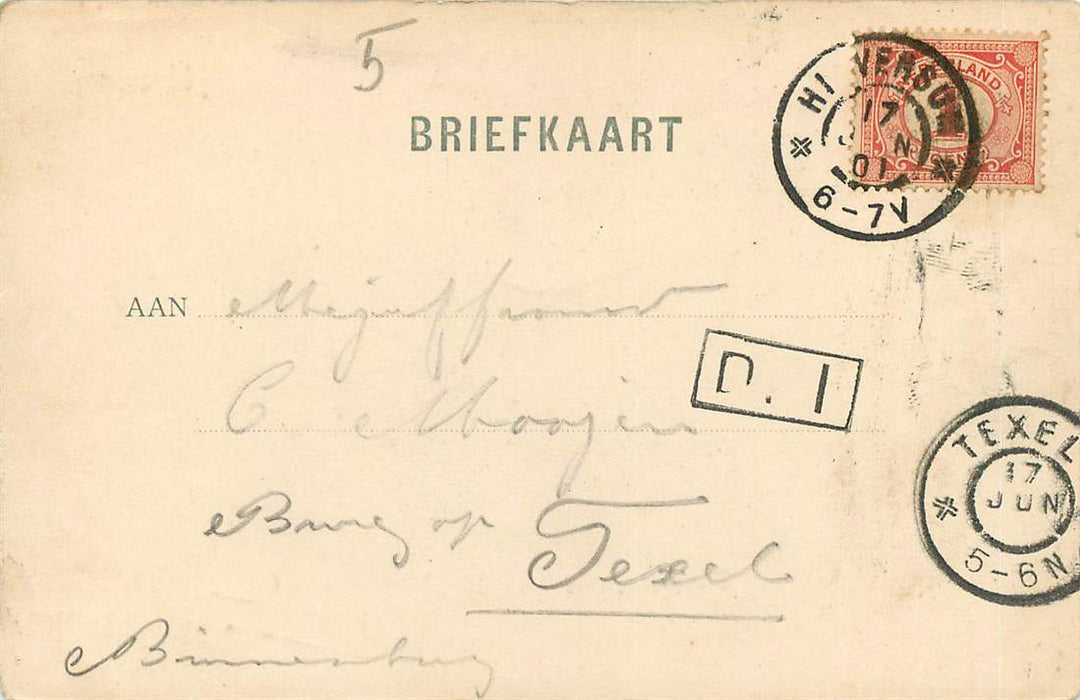 5
BRIEFKAART
HILVERSUM
17
JUN
01
6-7V
NEDERLAND
1
CENT
AAN Mejuffrouw
C. Mooijen
D. 1
TEXEL
17
JUN
5-6N
Burg op Texel
Binnenburg